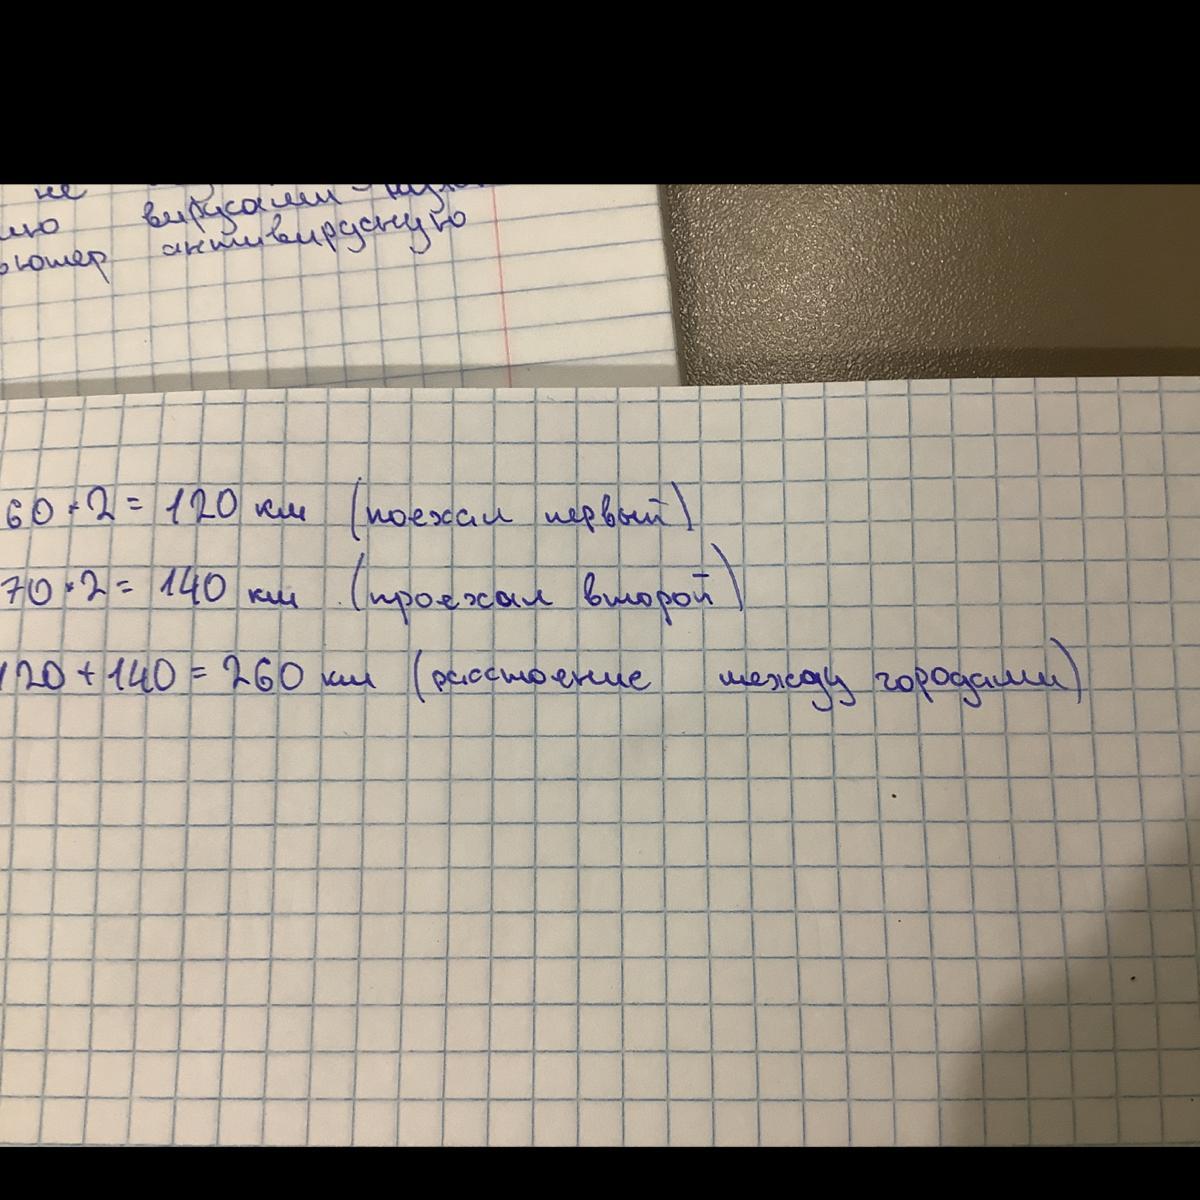 не
вирусами
антивирусную
60 · 2 = 120 км (поехал первый)
70 · 2 = 140 км (проехал второй)
120 + 140 = 260 км (расстоение между городами)